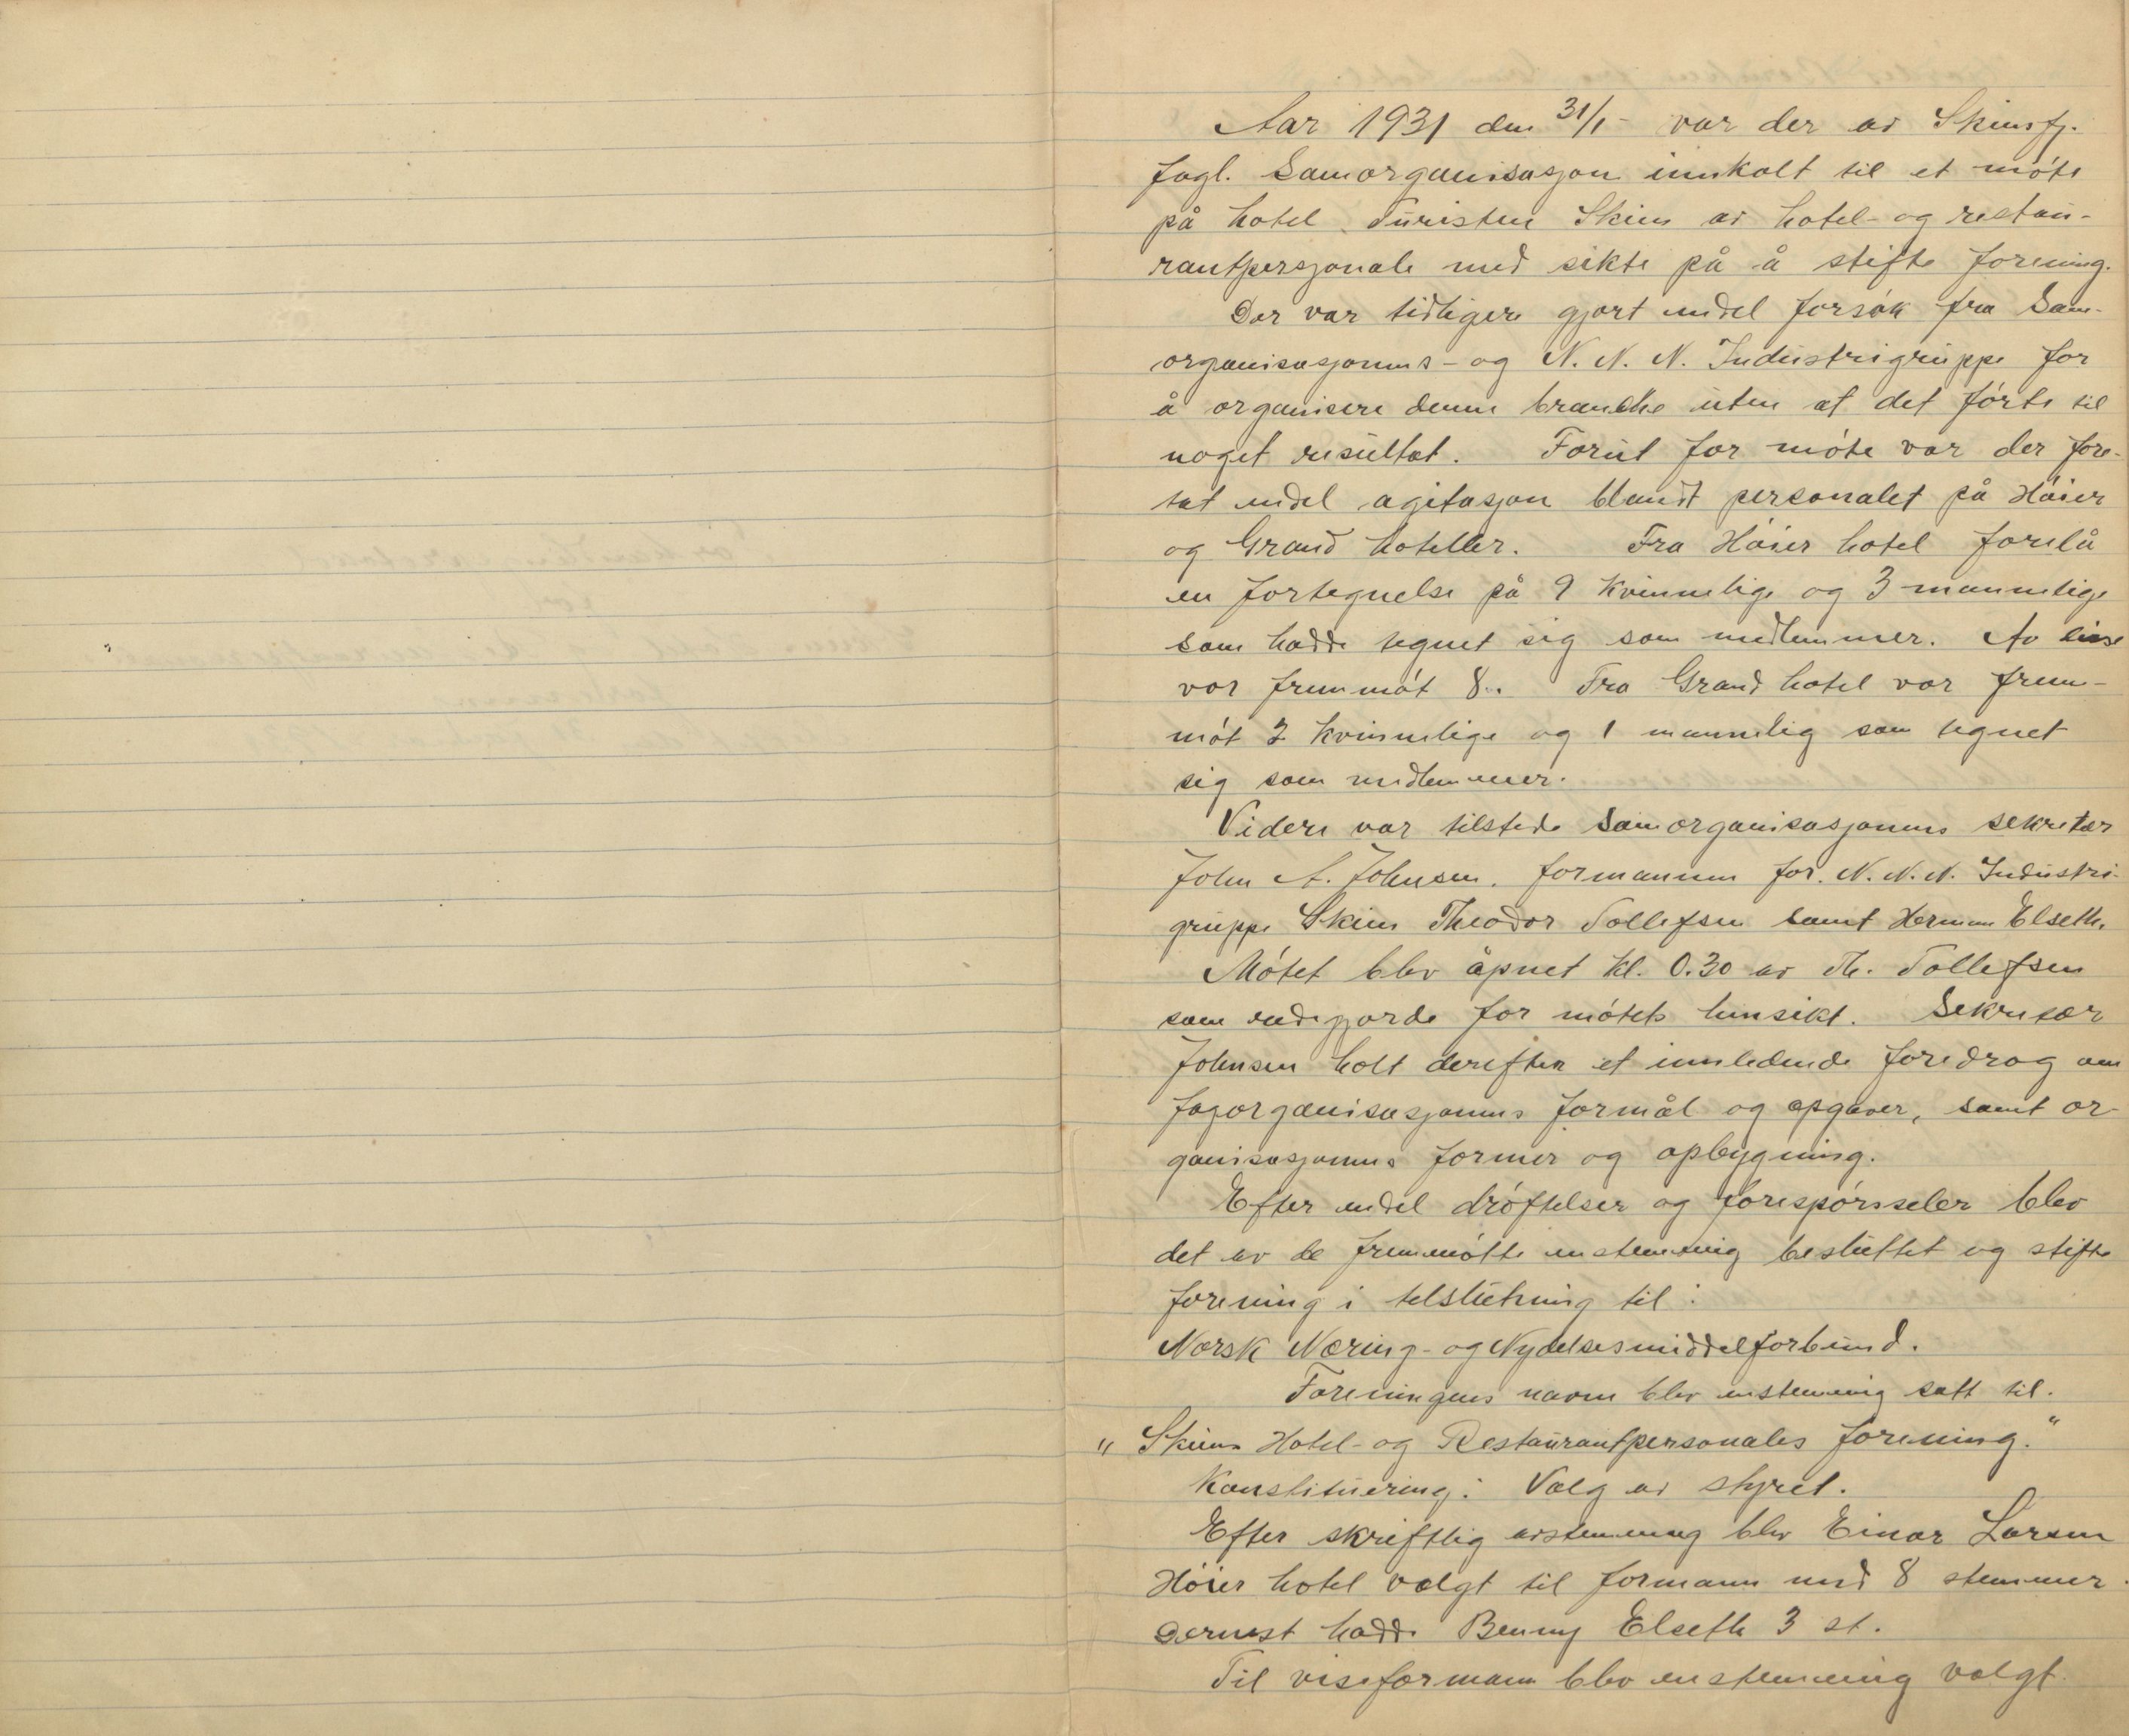 Aar 1931 den 31/1- var der av Skiensfj.
fagl. Samorganisasjon innkalt til et møte
på hotel Turisten Skien av hotel- og restau-
rantpersonale med sikte på å stifte forening.
Der var tidligere gjort endel forsøk fra Sam-
organisasjonens- og N. N. N. Industrigruppe for
å organisere denne branche uten at det førte til
noget resultat. Forut for møte var der fore-
tat endel agitasjon blandt personalet på Høier
og Grand hoteller. Fra Høier hotel forelå
en fortegnelse på 9 kvinnelige og 3 mannelige
som hadde tegnet sig som medlemmer. Av disse
var fremmøt 8. Fra Grand hotel var frem-
møt 2 kvinnelige og 1 mannelig som tegnet
sig som medlemmer.
Videre var tilstede Samorganisasjonens sekretær
John A. Johnsen. formannen for N. N. N. Industri-
gruppe Skien Theodor Tollefsen samt Herman Elseth.
Møtet blev åpnet kl. 0.30 av Th. Tollefsen
som redegjorde for møtets hensikt. Sekretær
Johnsen holt derefter et innledende foredrag om
fagorganisasjonens formål og opgaver, samt or-
ganisasjonens former og opbygning.
Efter endel drøftelser og forespørsseler blev
det av de fremmøtte enstemmig besluttet og stifte
forening i telslutning til:
Norsk Næring- og Nydelsesmiddelforbund.
Foreningens navn blev enstemmig satt til.
" Skiens Hotel- og Restaurantpersonales forening."
Konstituering: Valg av styret.
Efter skriftlig avstemming blev Einar Larsen
Høier hotel valgt til formann med 8 stemmer.
Dernest hadde Benny Elseth 3 st.
Til viseformann blev enstemmig valgt